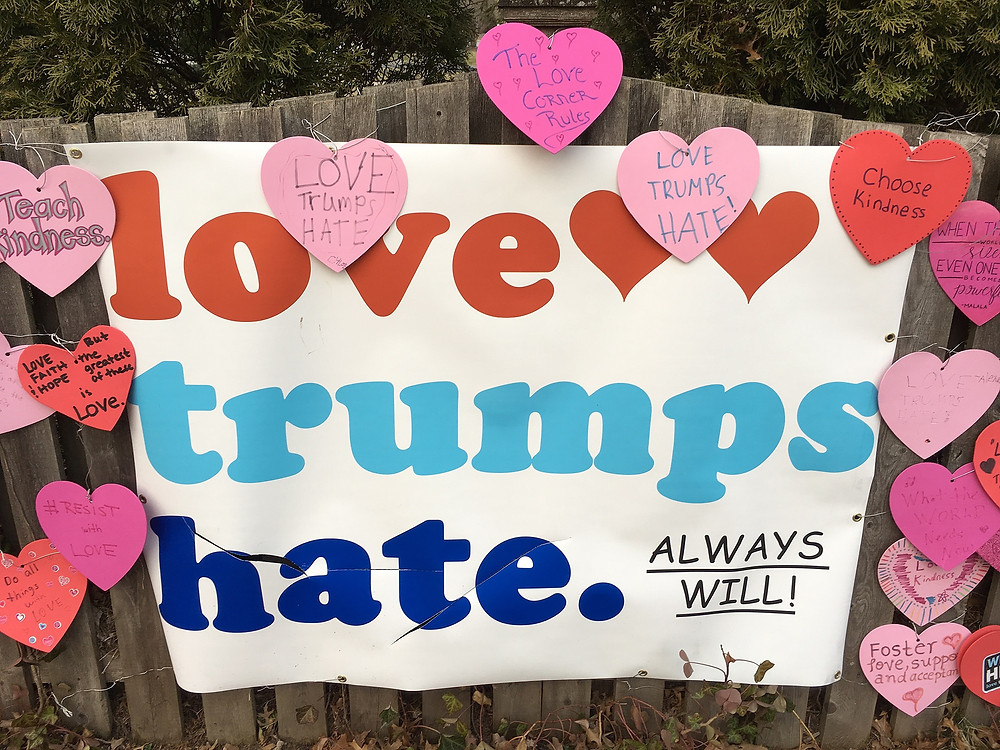 The
Love
Corner
Rules
LOVE
Trumps
HATE
LOVE
TRUMPS
HATE!
Choose
Kindness
Teach
Kindness.
love
trumps
hate.
ALWAYS
WILL!
WHEN TH
EVEN ONE
BECOMES
powerf
-MALALA
LOVE
FAITH
HOPE
But
the
greatest
of these
is
LOVE.
#RESIST
with
LOVE
Do all
things
with
LOVE
LOVE
TRUMPS
HATE
What the
WORLD
Needs
Kindness
Foster
love, suppo
and acceptan